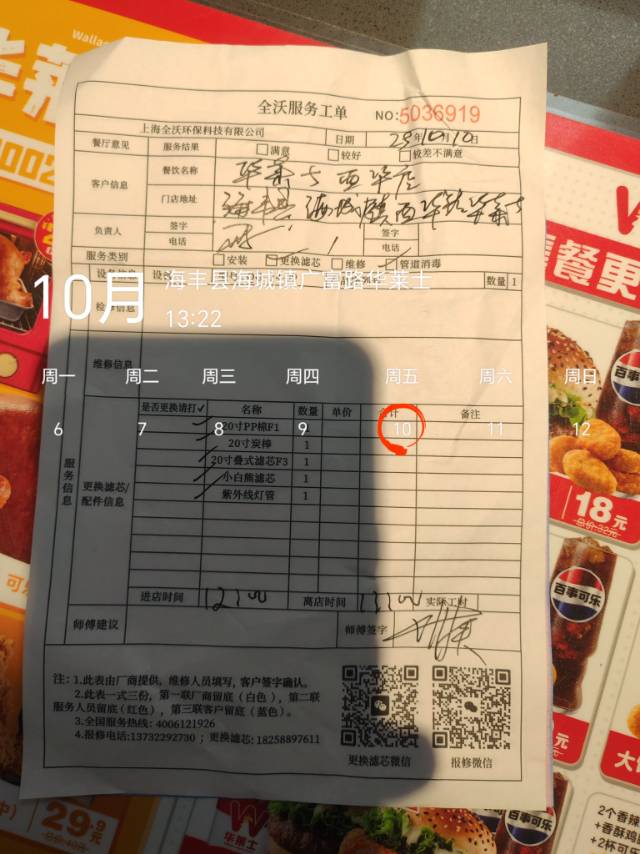 全沃服务工单
NO:5036919
上海全沃环保科技有限公司 日期 25年10月10日
餐厅意见 服务结果 满意 较好 较差不满意
客户信息 餐饮名称 华莱士西华店
门店地址 海丰县海城镇西华路华莱士
负责人 签字 签字
电话 电话
服务类别 安装 更换滤芯 维修 管道消毒
设备信息 数量 1
10月 海丰县海城镇广富路华莱士
13:22
检修信息
维修信息
周一 周二 周三 周四 周五 周六 周日
6 7 8 9 10 11 12
服务信息
更换滤芯/配件信息
是否更换请打✓ 名称 数量 单价 合计 备注
20寸PP棉F1
20寸炭棒 1
20寸叠式滤芯F3 1
小白熊滤芯 1
紫外线灯管 1
进店时间 12:00 离店时间 13:00 实际工时
师傅建议 师傅签字
注: 1.此表由厂商提供, 维修人员填写, 客户签字确认。
2.此表一式三份, 第一联厂商留底(白色), 第二联
服务人员留底(红色), 第三联客户留底(蓝色)。
3.全国服务热线: 4006121926
4.报修电话:13732292730 ; 更换滤芯: 18258897611
更换滤芯微信 报修微信
Walla
餐更
百事可乐
18元
百事可乐
元
29.9元
华莱士
百事可乐
2个香辣
+香酥鸡
+2杯可